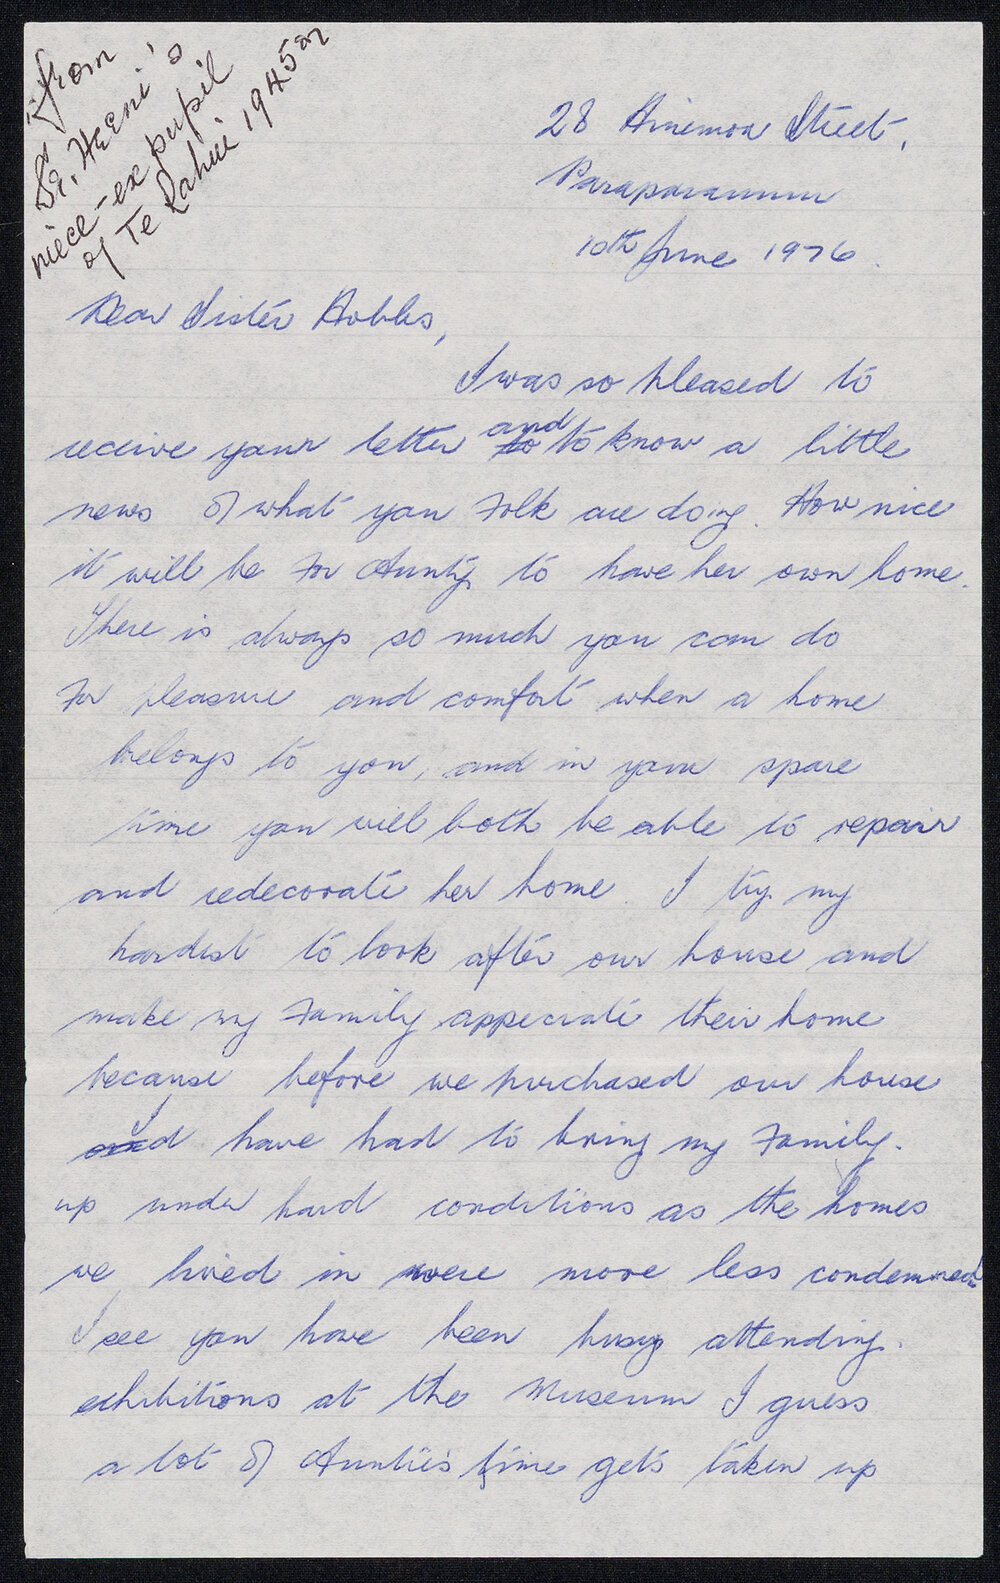 "from
Sr. Heeni's
niece - ex pupil
of Te Rahui 1945 on
28 Hinemoa Street,
Paraparaumu
10th June 1976.
Dear Sister Hobbs,
I was so pleased to
receive your letter and to to know a little
news of what you folk are doing. How nice
it will be for Aunty to have her own home.
There is always so much you can do
for pleasure and comfort when a home
belongs to you, and in your spare
time you will both be able to repair
and redecorate her home. I try my
hardest to look after our house and
make my family appeciate their home
because before we purchased our house
I have had to bring my family.
up under hard conditions as the homes
we lived in were more less condemned
I see you have been busy attending.
exhibitions at the Museum I guess
a lot of Auntie's time gets taken up